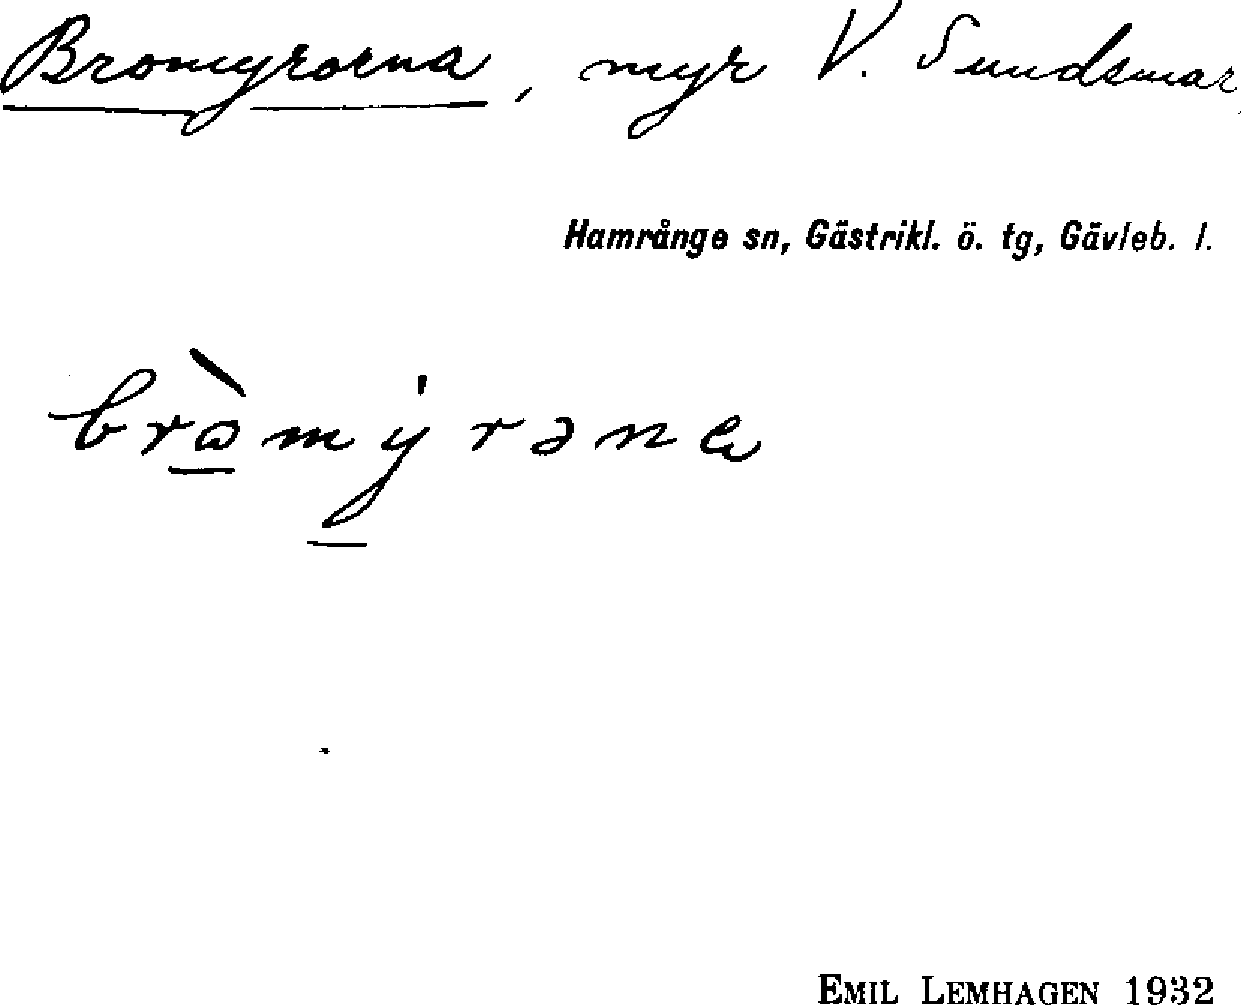 Bromyrorna, myr V. Sundsmar
Hamrånge sn, Gästrikl. ö. tg, Gävleb. l.
bròmýrəna
EMIL LEMHAGEN 1932